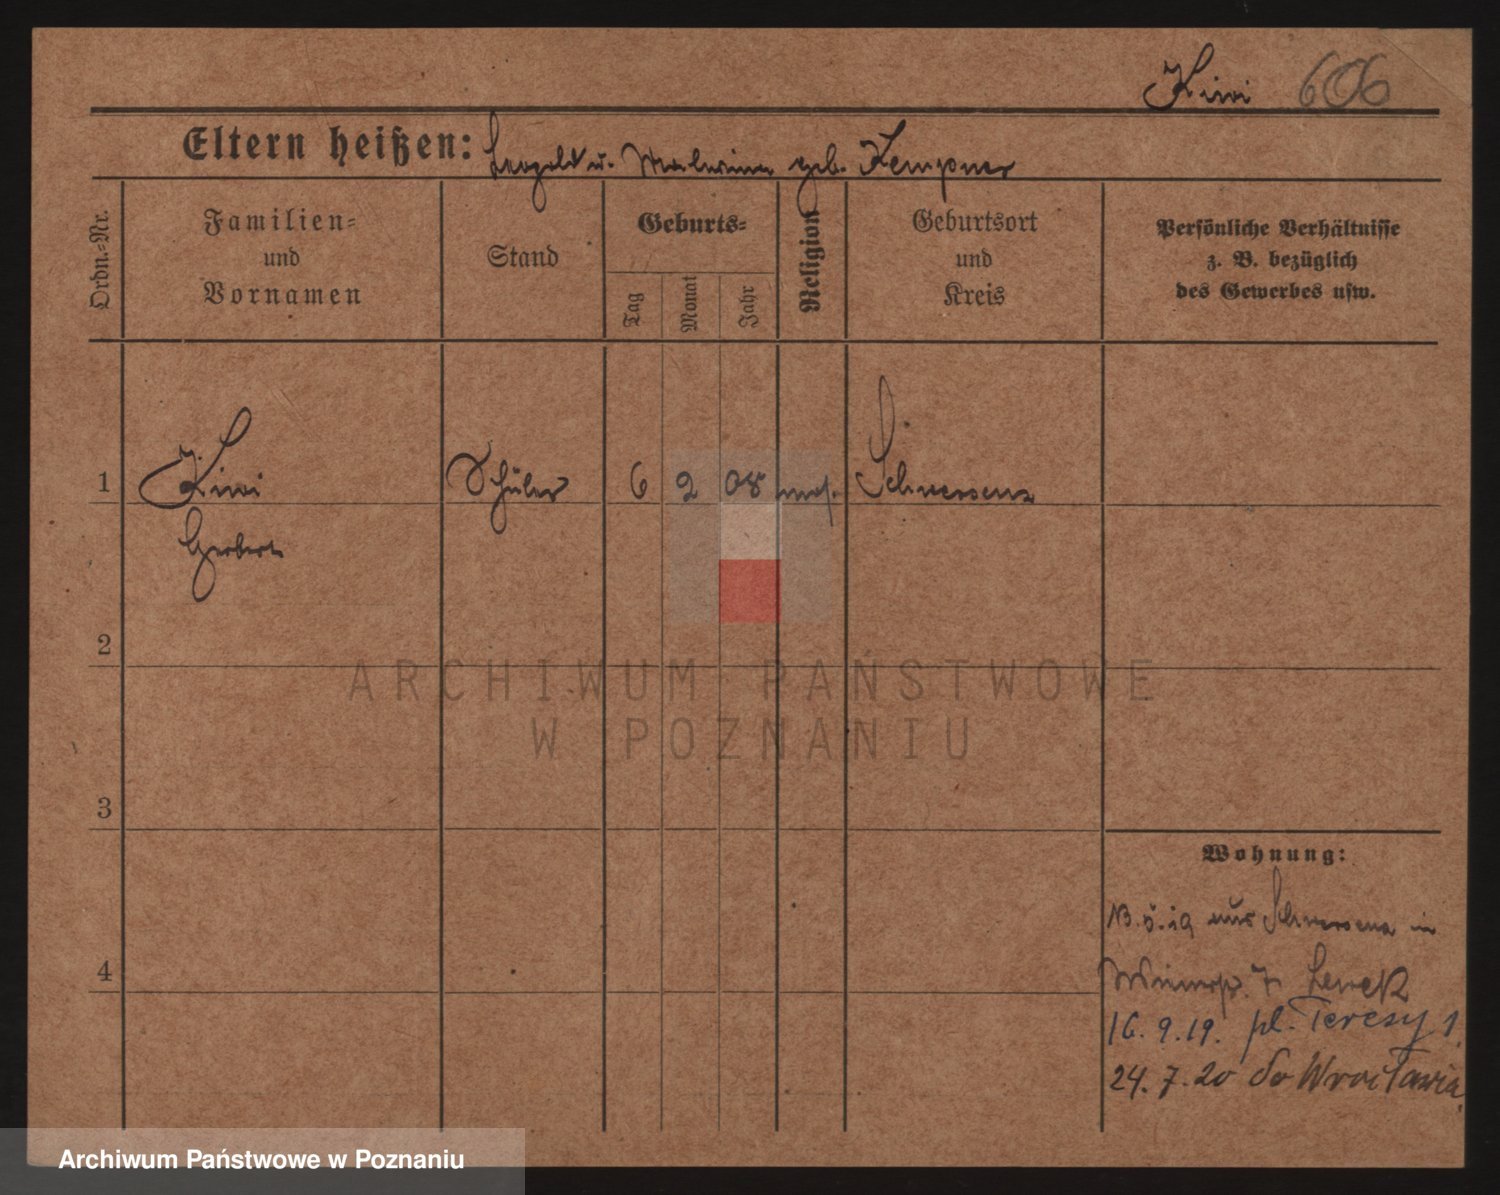 Kiwi 606
Eltern heißen: Leopold u. Malwina geb. Kempner
Ordn.=Nr.
Familien=
und
Vornamen
Stand
Geburts=
Tag
Monat
Jahr
Religion
Geburtsort
und
Kreis
Persönliche Verhältnisse
z. B. bezüglich
des Gewerbes usw.
1 Kiwi Schüler 6 2 08 mos. Schwersenz
Herbert
2
ARCHIWUM PAŃSTWOWE
W POZNANIU
3
Wohnung:
aus Schwersenz in
4
7 Lewek
16. 9. 19. pl. Teresy 1.
24. 7. 20 do Wrocławia.
Archiwum Państwowe w Poznaniu